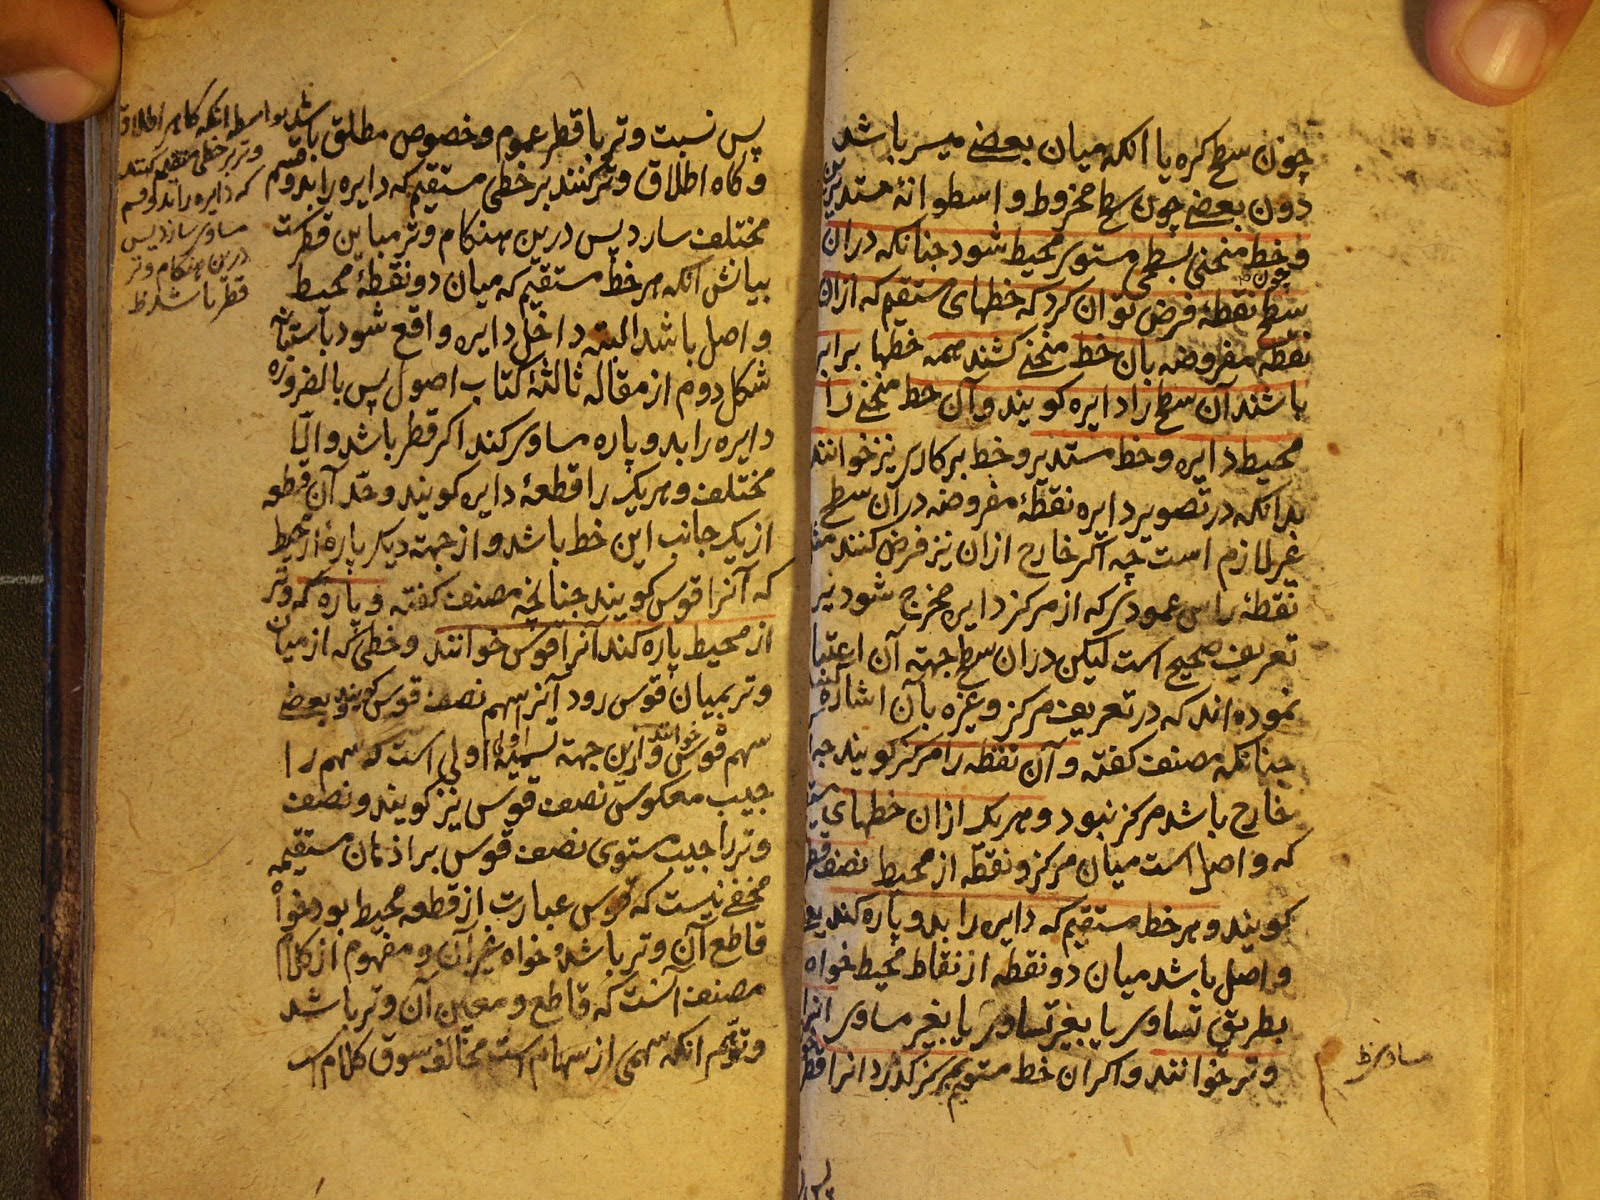 چون سطح کره یا انکه میان بعضے میسر باشد
دون بعضے چون سطح مخروط و اسطوانهٔ مستدیرین
و خط منحنی بسطحی مستوی محیط شود چنانکه دران
سطح نقطهٔ فرض توان کرد که خطهای مستقیم که ازان
چون
نقطهٔ مفروضه بان خط منحنے کشند همه خطها برابر
باشند آن سطح را دایره کویند و آن خط منحنے را
محیط دایره و خط مستدیر و خط پرکاری نیز خوانند
بدانکه در تصویر دایره نقطهٔ مفروضه دران سطح
غیر لازم است چه اکر خارج ازان نیز فرض کنند
نقطهٔ راس عمودی که از مرکز دایره مخرج شود نیز
تعریف صحیح است لیکن دران سطح جهته آن اعتبار
نموده‌اند که در تعریف مرکز و غیره بآن اشاره کنند
چنانکه مصنف کفته و آن نقطه را مرکز کویند چه
خارج باشد مرکز نبود و هر یک ازان خطهای
که واصل است میان مرکز و نقطهٔ از محیط نصف قطر
کویند و هر خط مستقیم که دایره را بدو پاره کند
واصل باشد میان دو نقطه از نقاط محیط خواه
بطریق تساوی یا بغیر تساوی یا بغیر مساوی انرا
وتر خوانند و اکر ان خط مستقیم بمرکز کذرد انرا قطر
مساوی ظ
پس نسبت وتر با قطر عموم و خصوص مطلق باشد
و کاه اطلاق وتر کنند بر خطی مستقیم که دایره را بدو قسم
مختلف سازد پس درین هنکام وتر مباین قطرست
بیانش انکه هر خط مستقیم که میان دو نقطهٔ محیط
واصل باشد البته داخل دایره واقع شود باستبانه
شکل دوم از مقاله ثالثهٔ کتاب اصول پس بالضروره
دایره را بدو پاره مساوی کند اکر قطر باشد و الّا
مختلف و هر یک را قطعهٔ دایره کویند و حدّ آن قطعه
از یک جانب این خط باشد و از جهته دیکر پارهٔ از محیط
که آنرا قوس کویند چنانچه مصنف کفته و پاره که وتر
از محیط پاره کند آنرا قوس خوانند و خطی که از میان
وتر بمیان قوس رود آنرا سهم نصف قوس کویند و بعضے
سهم قوس خوانند و ازین جهته تسمیهٔ اولی است که سهم را
جیب معکوس نصف قوس نیز کویند و نصف
وتر را جیب مستوی نصف قوس بر اذهان مستقیمه
مخفے نیست که قوس عبارت از قطعه محیط بود خواه
قاطع آن وتر باشد و خواه غیر آن و مفهوم از کلام
مصنف آنست که قاطع و معین آن وتر باشد
و توهّم انکه سهمی از سهام است مخالف سوق کلام است
بواسطه انکه کاهی اطلاق
وتر بر خطی مستقیم کنند
که دایره را بدو قسم
مساوی سازد پس
درین هنکام وتر
قطر باشد ظ